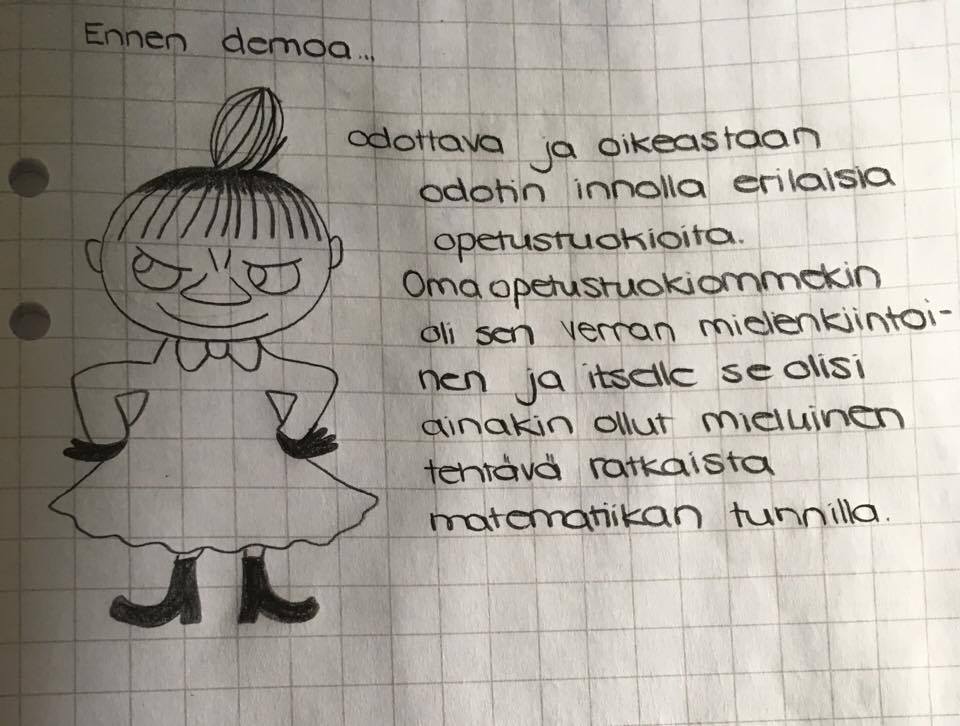 Ennen demoa...
odottava ja oikeastaan
odotin innolla erilaisia
opetustuokioita.
Oma opetustuokiommekin
oli sen verran mielenkiintoi-
nen ja itselle se olisi
ainakin ollut mieluinen
tehtävä ratkaista
matematiikan tunnilla.